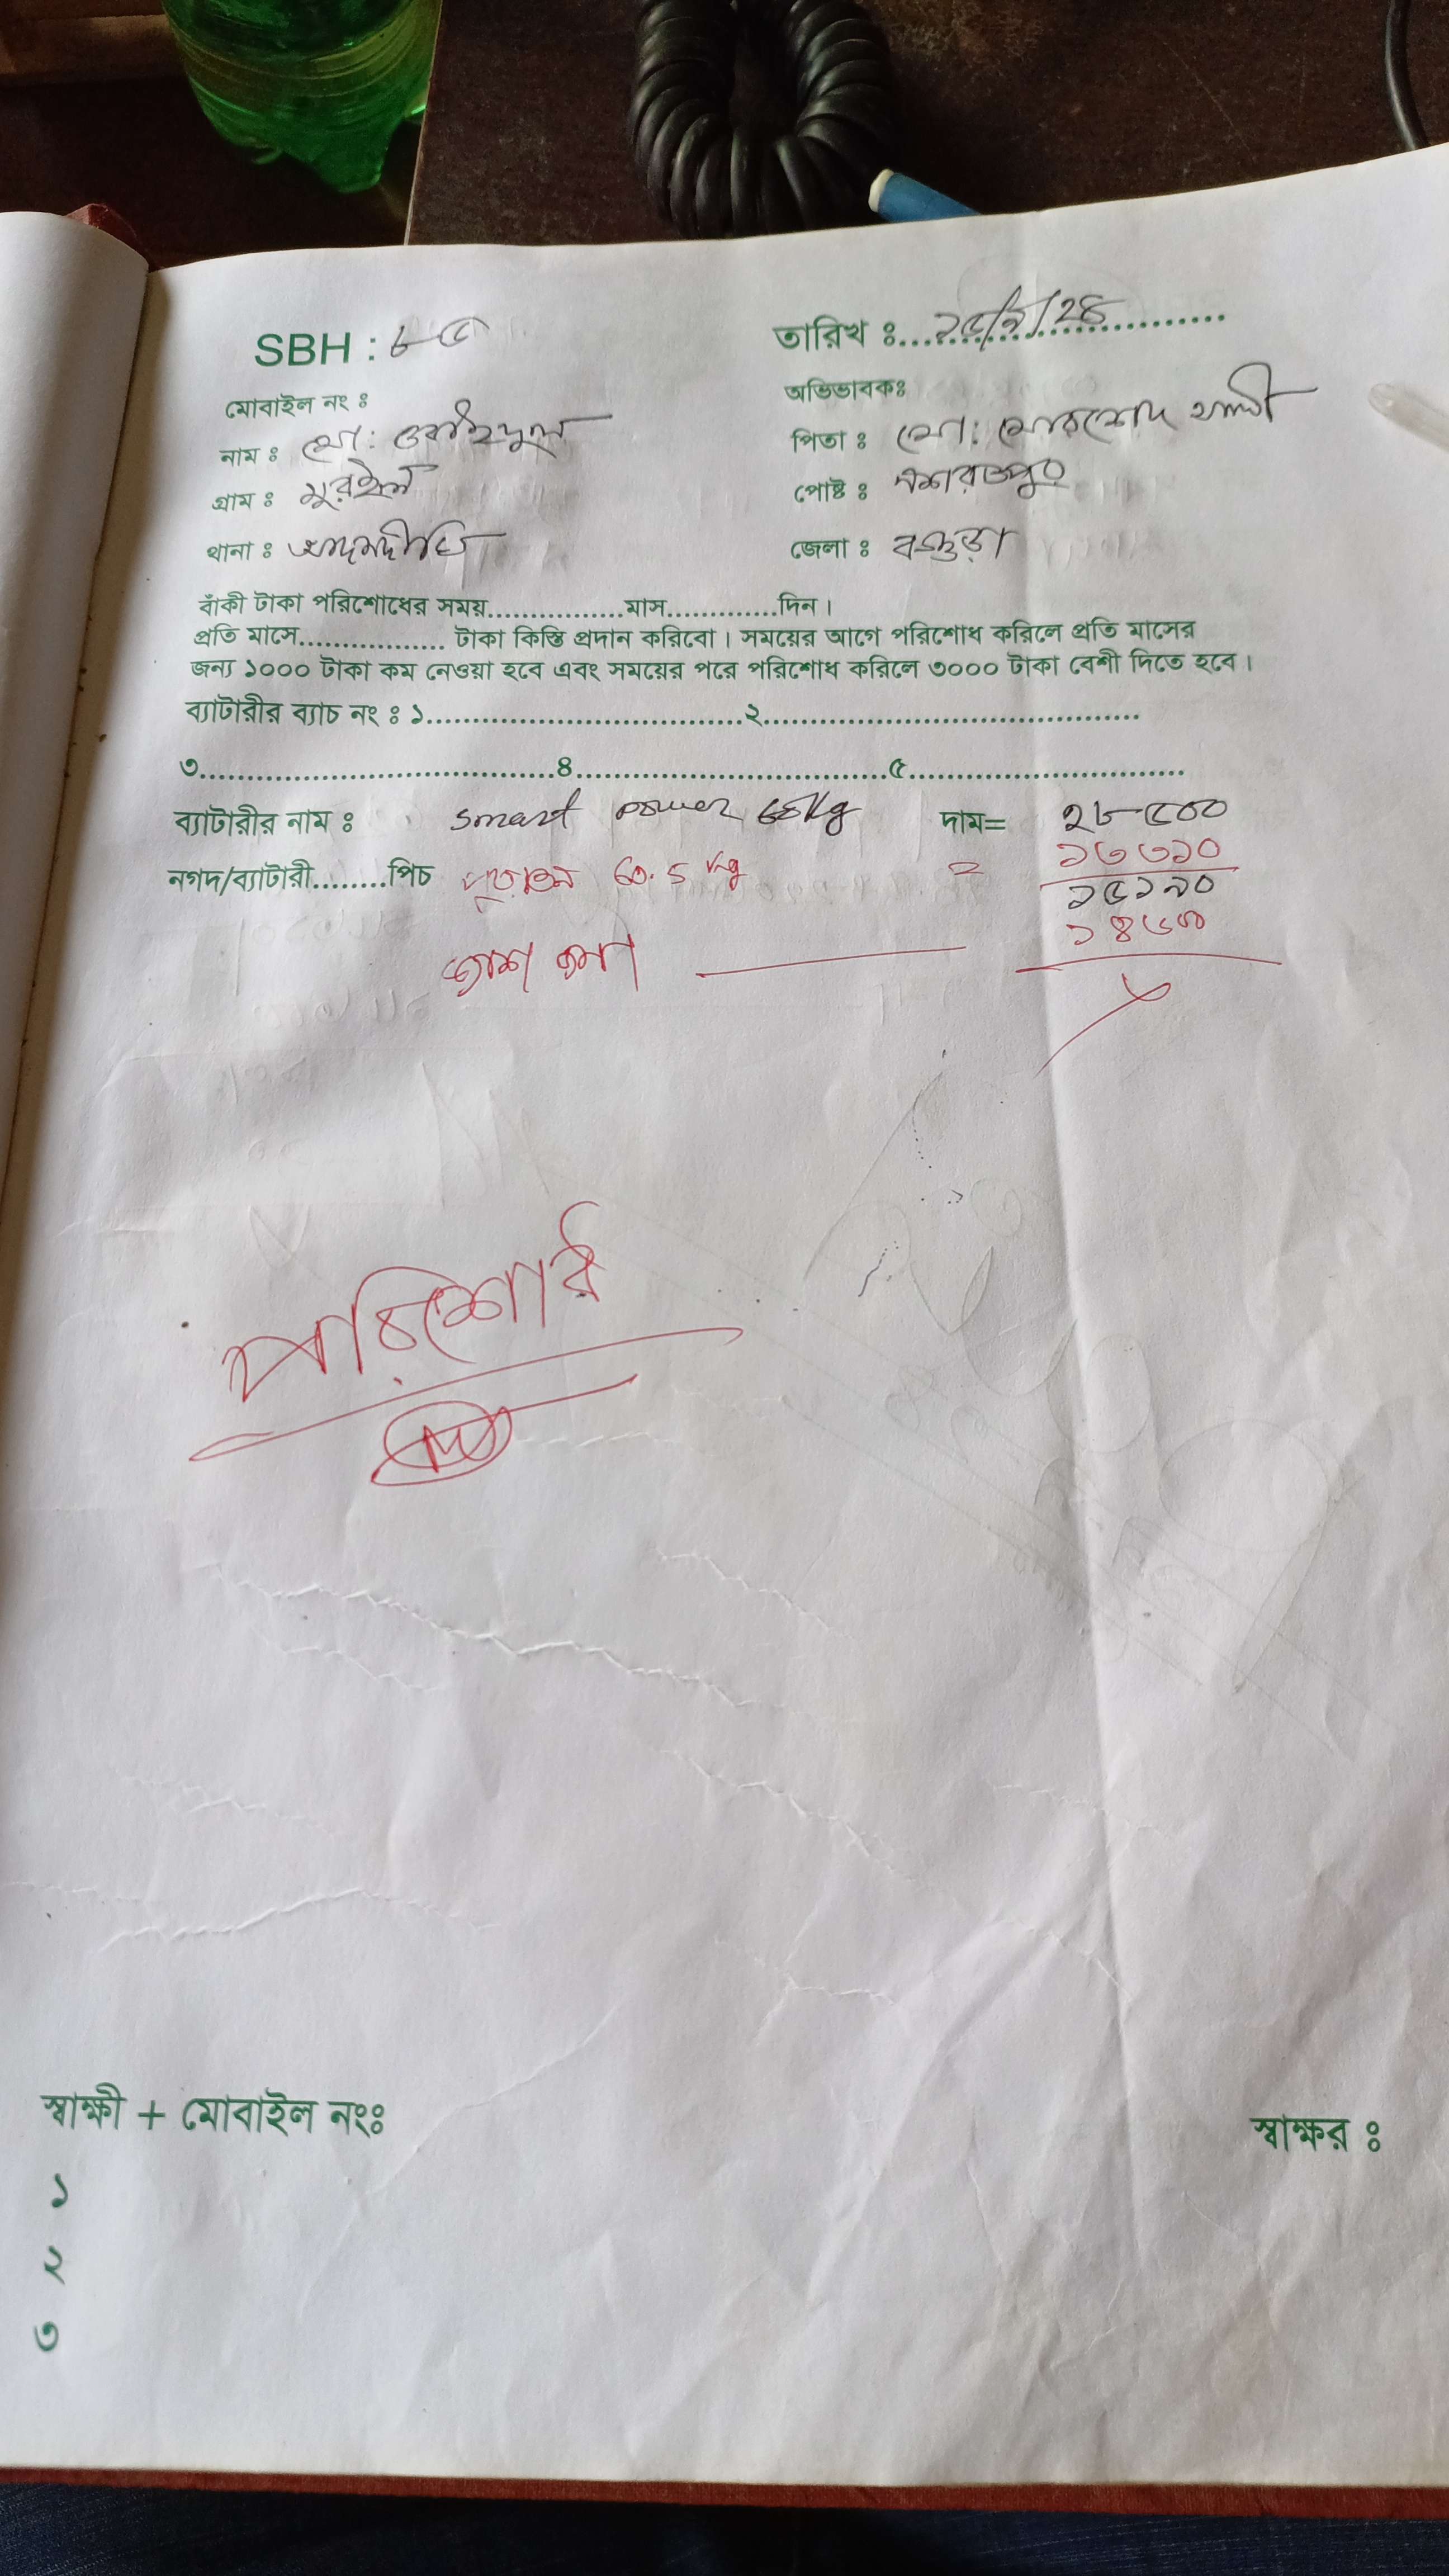 SBH : ৮৫
তারিখ ঃ... ২৫/২/২৪
মোবাইল নং ঃ
অভিভাবকঃ
নাম ঃ মো:
পিতা ঃ মো: মোরশেদ আলী
গ্রাম ঃ মুরইল
পোষ্ট ঃ নশরতপুর
থানা ঃ আদমদীঘি
জেলা ঃ বগুড়া
বাঁকী টাকা পরিশোধের সময়................মাস.............দিন।
প্রতি মাসে.................. টাকা কিস্তি প্রদান করিবো। সময়ের আগে পরিশোধ করিলে প্রতি মাসের
জন্য ১০০০ টাকা কম নেওয়া হবে এবং সময়ের পরে পরিশোধ করিলে ৩০০০ টাকা বেশী দিতে হবে।
ব্যাটারীর ব্যাচ নং ঃ ১......................................২.............................................
৩..........................................৪.....................................৫................................
ব্যাটারীর নাম ঃ smart power 68kg দাম= ২৮৫০০
নগদ/ব্যাটারী........পিচ পুরাতন 60.5 kg = ১৩৩১০
১৫১৯০
জমা
পরিশোধ
স্বাক্ষী + মোবাইল নংঃ
স্বাক্ষর ঃ
১
২
৩